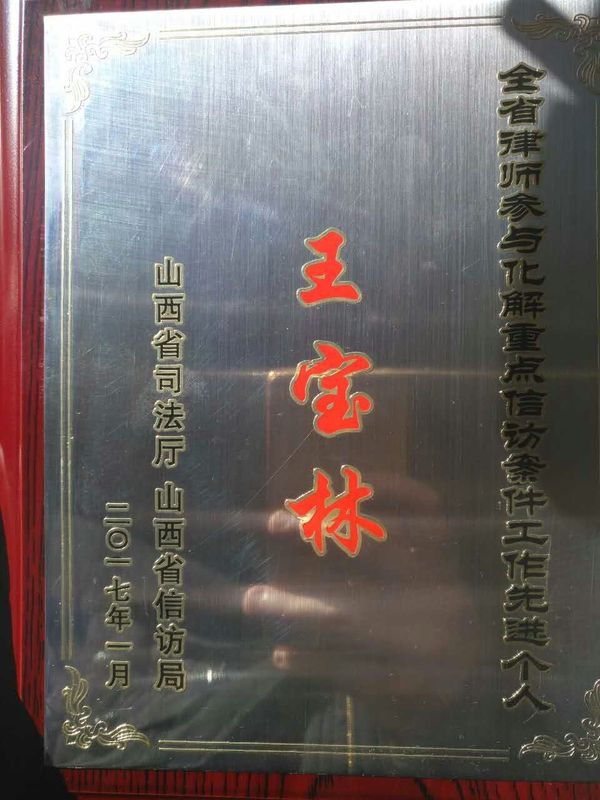 全省律师参与化解重点信访案件工作先进个人
王宝林
山西省司法厅 山西省信访局
二〇一七年一月